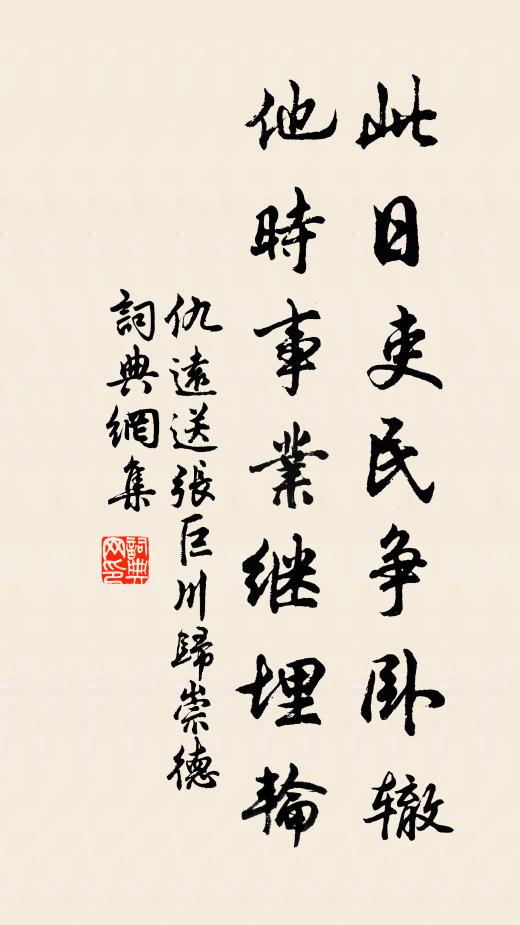 此日吏民争卧辙
他時事業继埋輪
仇遠送張巨川歸崇德
詞典網集
詞典
网印